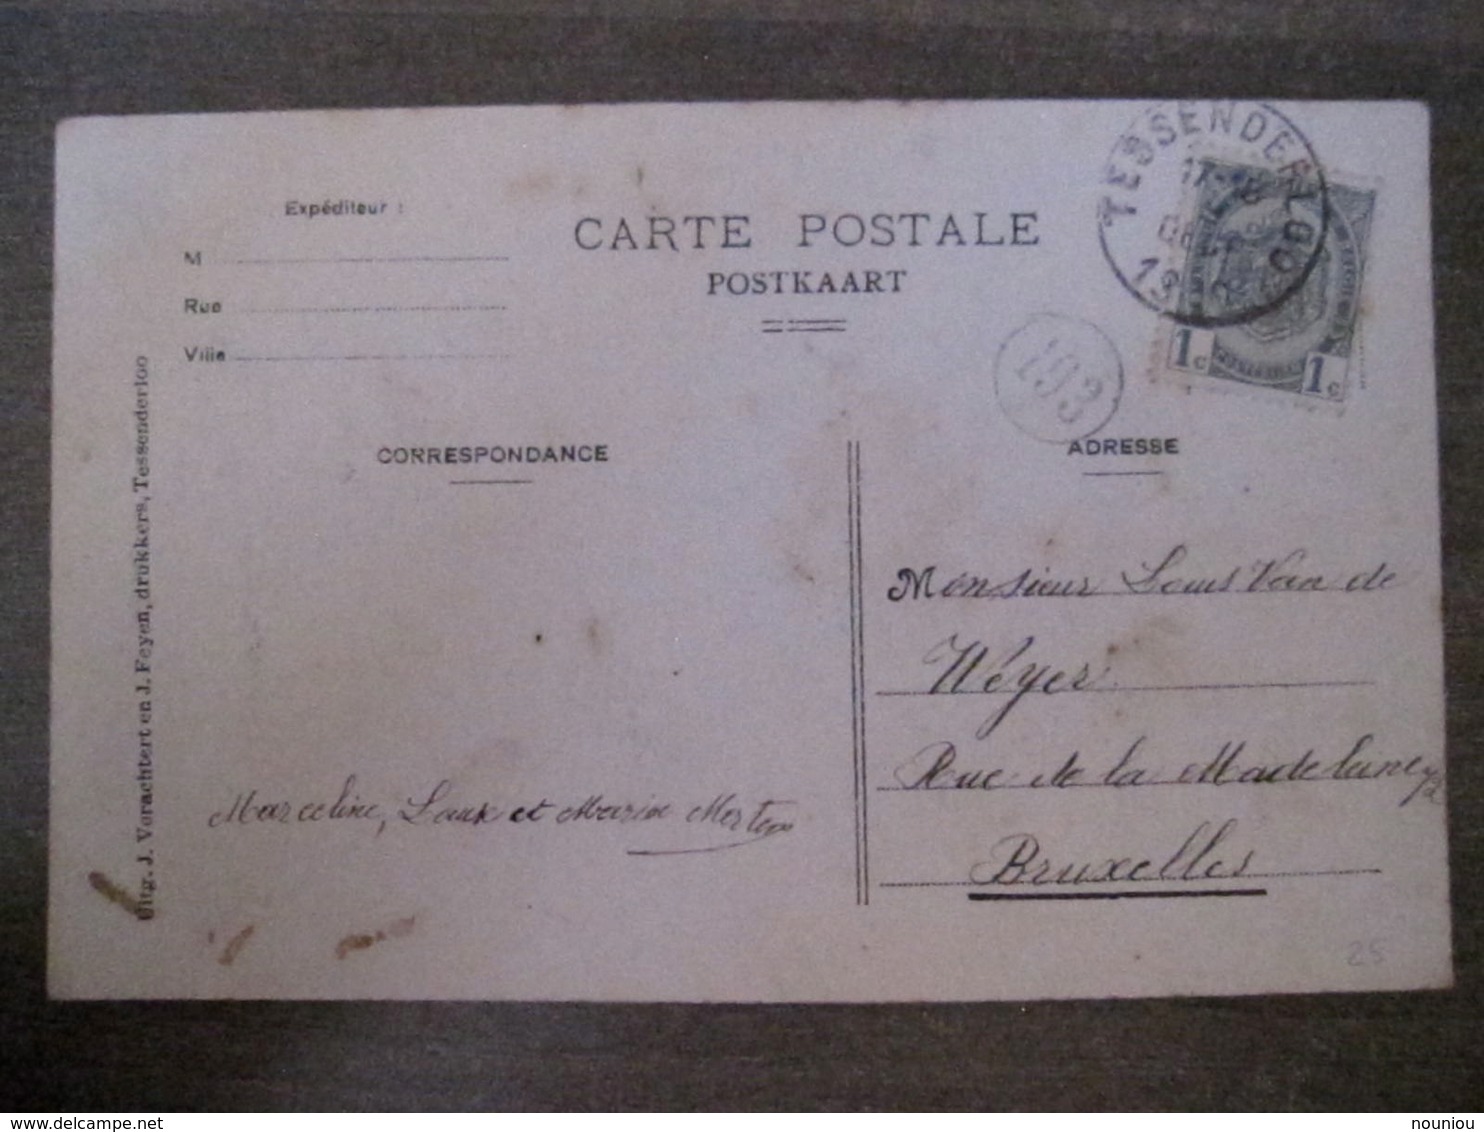 Expéditeur :
M
Rue
Ville
CARTE POSTALE
POSTKAART
TESSENDERLOO
17-18
19
1c 1c
193
CORRESPONDANCE
ADRESSE
Uitg. J. Verachtert en J. Feyen, drukkers, Tessenderloo
Monsieur Louis Van de
Wéyer
Rue de la Madeleine
Bruxelles
Marceline, et Maria Mertens
25
nouniou